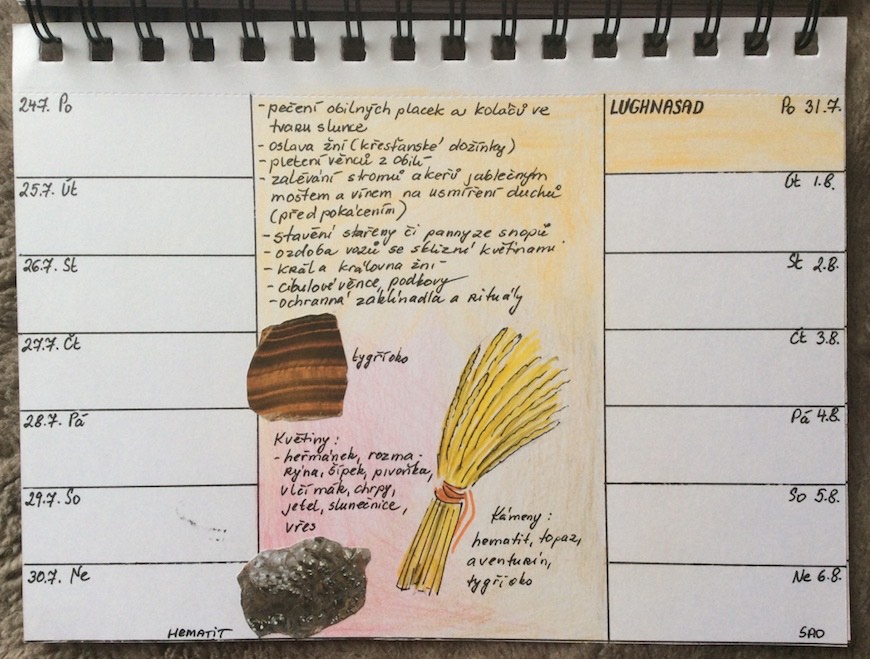 24.7. Po
25.7. Út
26.7. St
27.7. Čt
28.7. Pá
29.7. So
30.7. Ne
HEMATIT
- pečení obilných placek a koláčů ve
tvaru slunce
- oslava žní (křesťanské dožínky)
- pletení věnců z obilí
- zalévání stromů a keřů jablečným
moštem a vínem na usmíření duchů
(před pokácením)
- stavění stařeny či panny ze snopů
- ozdoba vozů se sklizní květinami
- král a královna žní
- cibulové věnce, podkovy
- ochranná zaklínadla a rituály
tygří oko
Květiny:
- heřmánek, rozma-
rýna, šípek, pivoňka,
vlčí mák, chrpy,
jetel, slunečnice,
vřes
Kámeny:
hematit, topaz,
aventurín,
tygří oko
LUGHNASAD Po 31.7.
Út 1.8.
St 2.8.
Čt 3.8.
Pá 4.8.
So 5.8.
Ne 6.8.